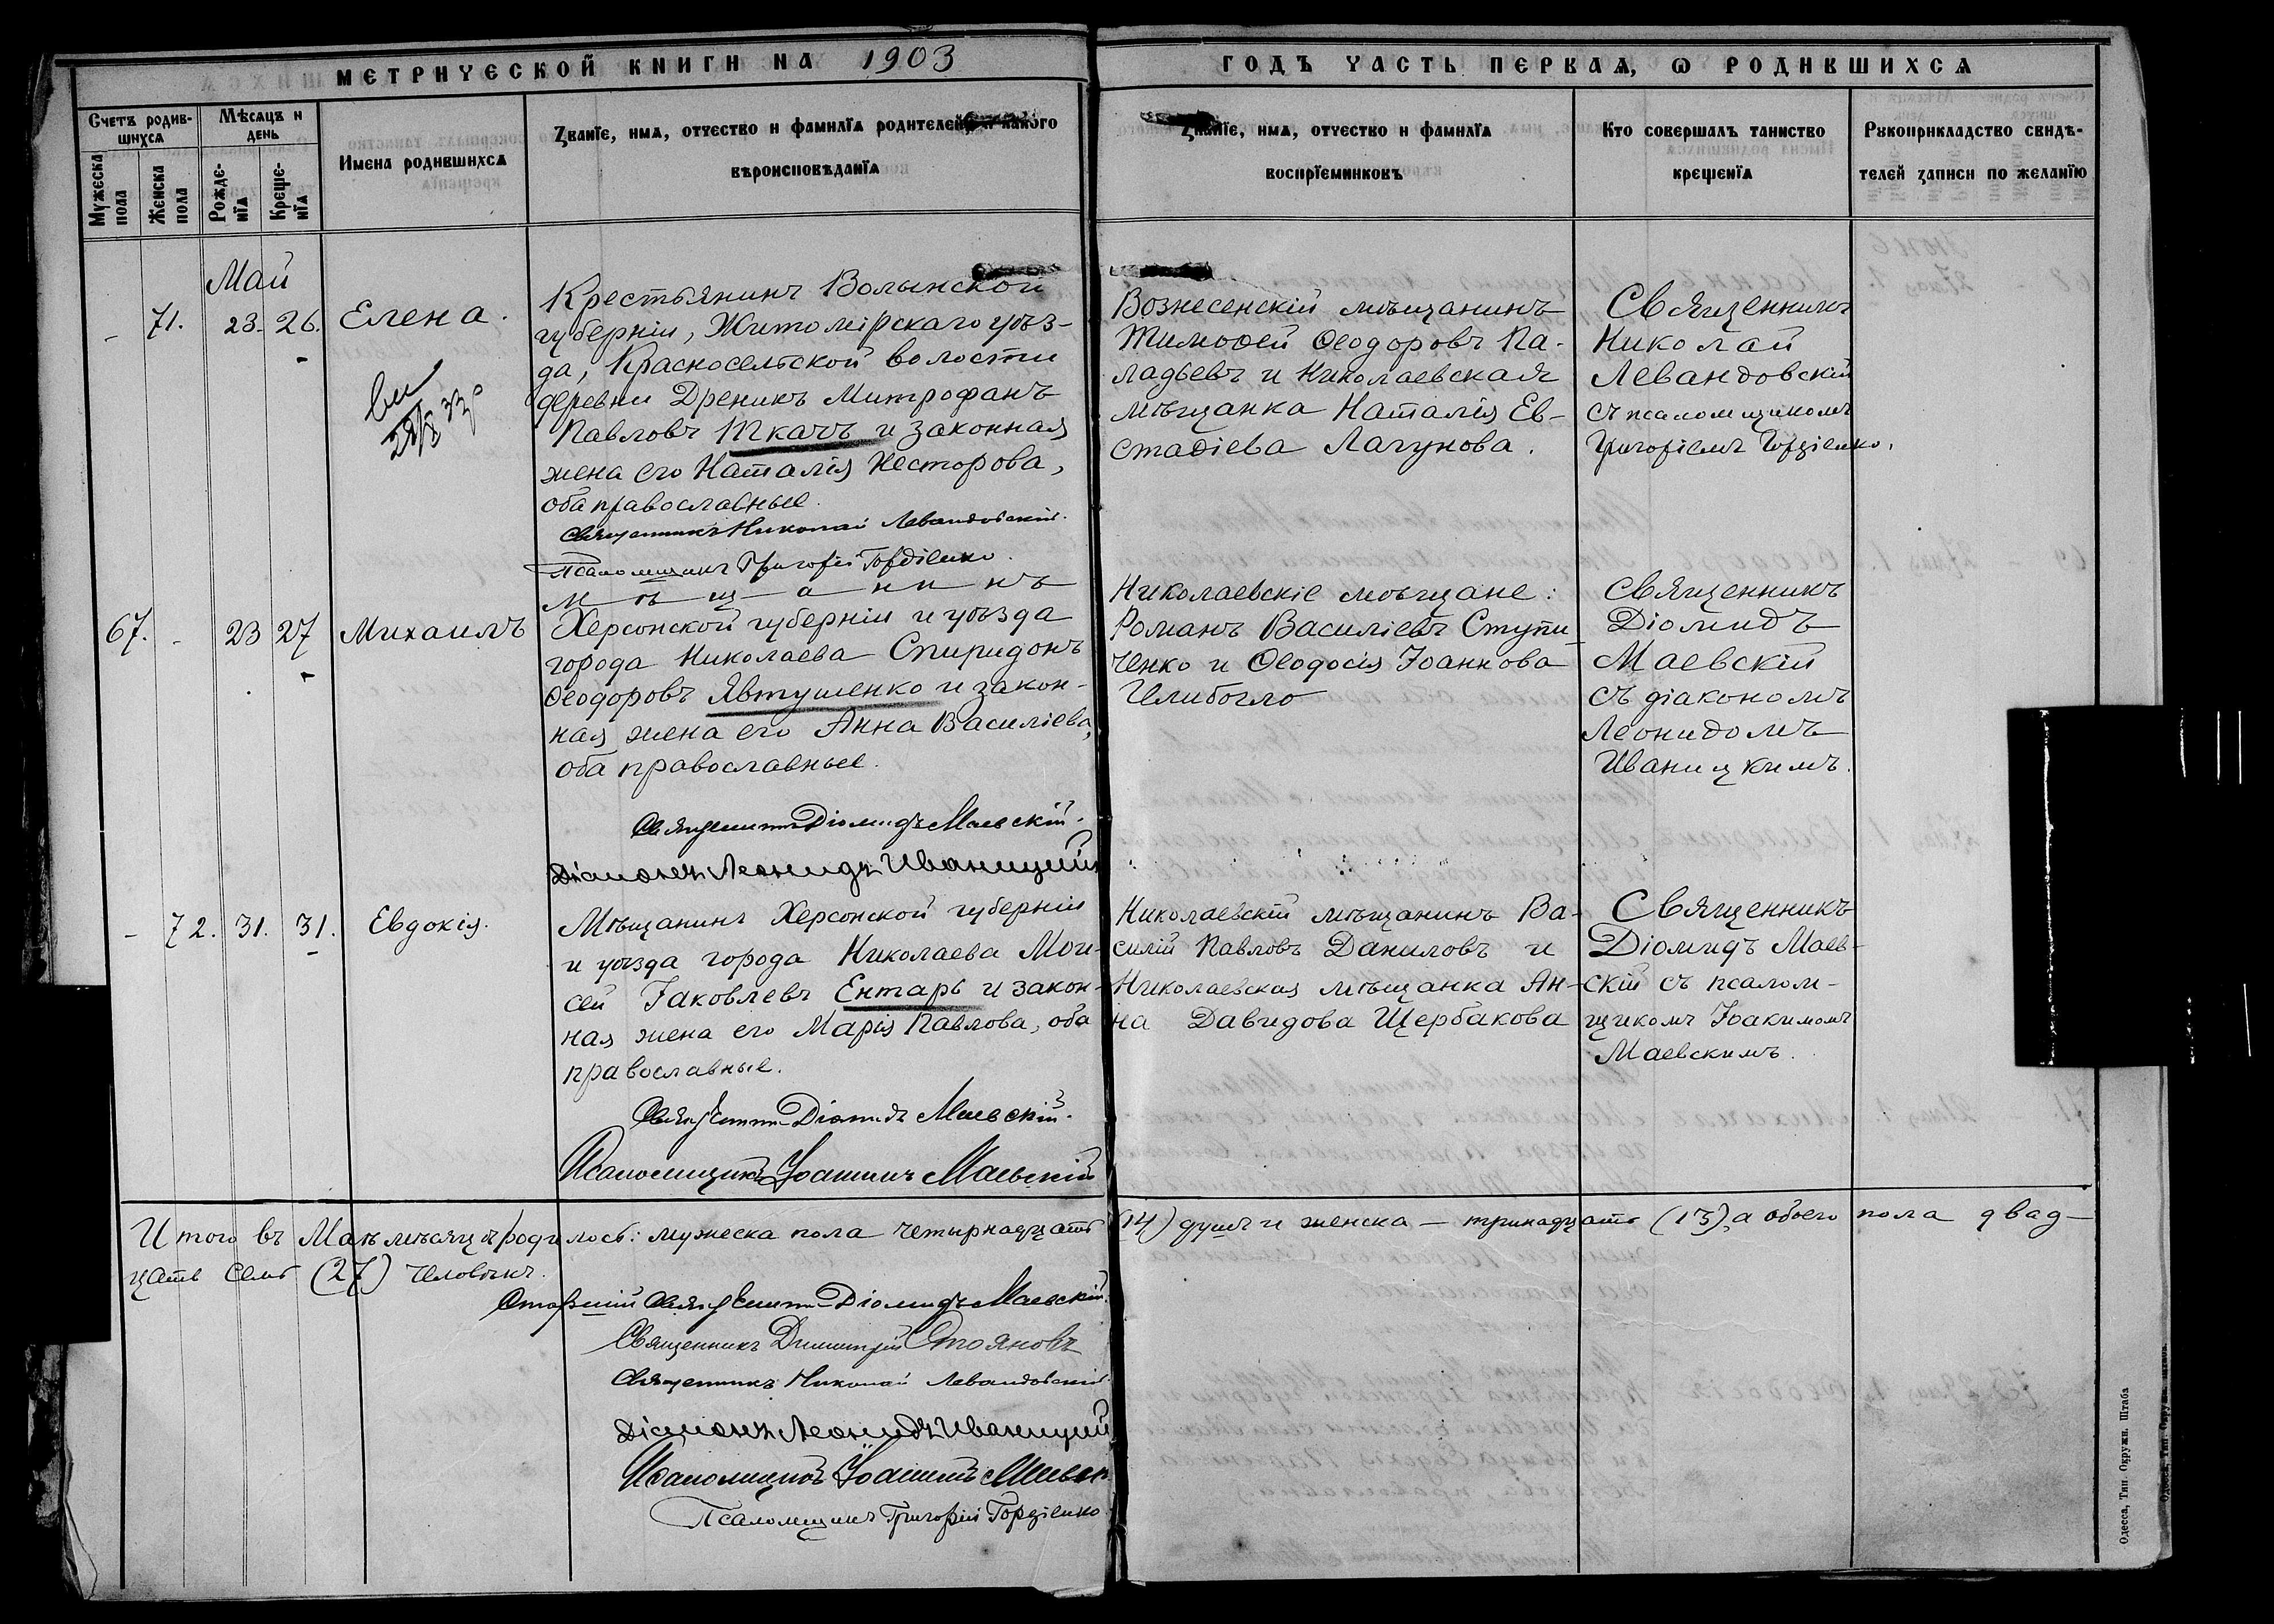 МЕТРИЧЕСКОЙ КНИГИ НА 1903
ГОДЪ ЧАСТЬ ПЕРВАѦ, Ѡ РОДИВШИХСѦ
Счетъ родив-
шихсѧ
Мѣсѧцъ и
день
Мужеска
пола
Женска
пола
Рожде-
нїѧ
Креще-
нїѧ
Имена родившихсѧ
Званїе, имѧ, отчество и фамилїѧ родителей, и какого
вѣроисповѣданїѧ
Званїе, имѧ, отчество и фамилїѧ
воспрїемниковъ
Кто совершалъ таинство
крещенїѧ
Рꙋкоприкладство свидѣ-
телей записи по желанїю
Май
- 71. 23. 26. Елена.
Крестьянинъ Волынской
губерніи, Житомірскаго уѣз-
да, Красносельской волости
деревни Дреникъ Митрофанъ
Павловъ Ткачъ и законная
жена его Наталія Несторова,
оба православные.
Священникъ Николай Левандовскій.
Псаломщикъ Григорій Гордіенко.
Вознесенскій мѣщанинъ
Тимоѳей Ѳеодоровъ Па-
ладьевъ и Николаевская
мѣщанка Наталія Ев-
стаѳіева Лагунова.
Священникъ
Николай
Левандовскій
съ псаломщикомъ
Григоріемъ Гордіенко.
67. - 23 27 Михаилъ
Мѣщанинъ
Херсонской губерніи и уѣзда
города Николаева Спиридонъ
Ѳеодоровъ Явтушенко и закон-
ная жена его Анна Василіева,
оба православные.
Священникъ Діомидъ Маевскій.
Діаконъ Леонидъ Иваницкій
Николаевскіе мѣщане:
Романъ Василіевъ Ступи-
ченко и Ѳеодосія Іоаннова
Челибогло
Священникъ
Діомидъ
Маевскій
съ діакономъ
Леонидомъ
Иваницкимъ.
- 72. 31. 31. Евдокія.
Мѣщанинъ Херсонской губерніи
и уѣзда города Николаева Мои-
сей Іаковлевъ Ентарь и закон-
ная жена его Марія Павлова, оба
православные.
Священникъ Діомидъ Маевскій.
Псаломщикъ Іоакимъ Маевскій
Николаевскій мѣщанинъ Ва-
силій Павловъ Даниловъ и
Николаевская мѣщанка Ан-
на Давидова Щербакова
Священникъ
Діомидъ Маев-
скій съ псалом-
щикомъ Іоакимомъ
Маевскимъ.
Итого въ Маѣ мѣсяцѣ родилось: мужеска пола четырнадцать (14) душъ и женска — тринадцать (13), а обоего пола двад-
цать семь (27) человѣкъ.
Старшій Священникъ Діомидъ Маевскій.
Священникъ Димитрій Стояновъ
Священникъ Николай Левандовскій.
Діаконъ Леонидъ Иваницкій
Псаломщикъ Іоакимъ Маевск
Псаломщикъ Григорій Гордіенко.
Одесса, Тип. Окружн. Штаба